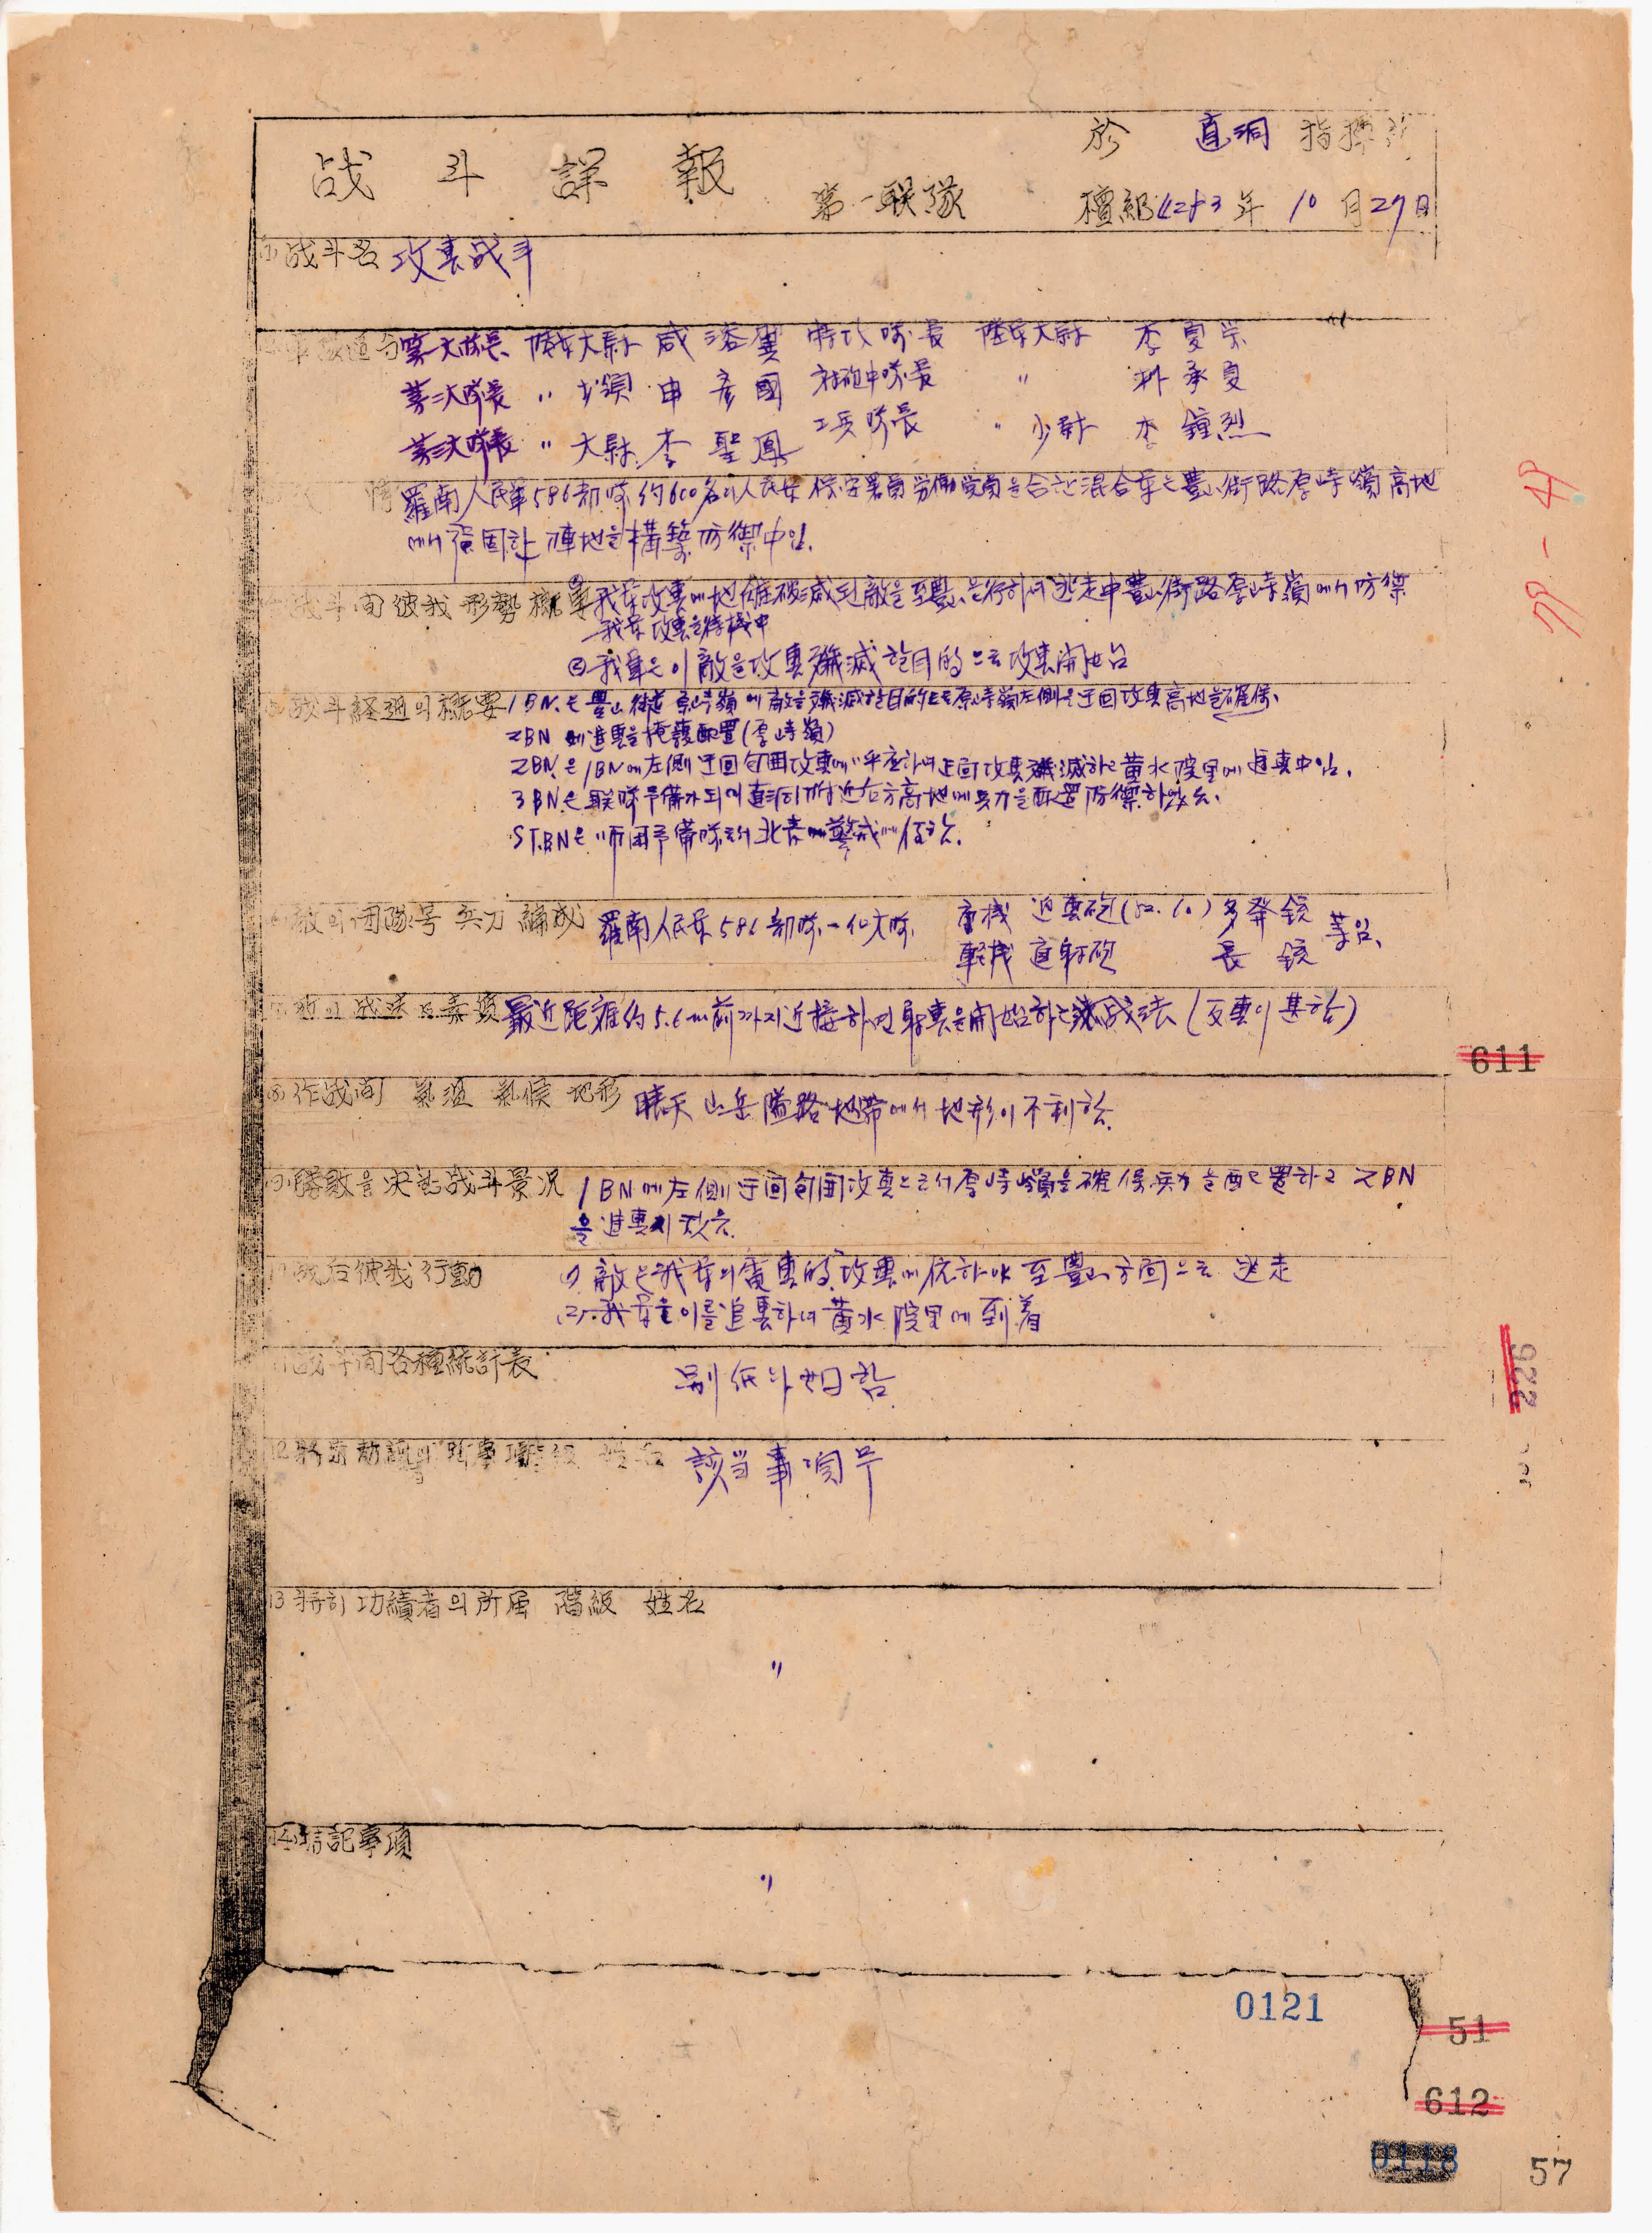 於 直洞 指揮所
战斗詳報
第一联隊
檀紀4283年 10月27日
战斗名 攻擊战斗
第一大隊長 陸軍大尉 咸 翼 特攻隊長 陸軍大尉 李夏榮
第二大隊長 〃 少領 申彦國 対戦砲中隊長 〃 朴承夏
第三大隊長 〃 大尉 李聖鳳 工兵隊長 〃 少尉 李鐘烈
情 羅南人民軍586部隊約600名의人民軍 保安署員 労働党員을合한混合軍은豊山街路厚峙嶺高地
에서强固한 陣地를構築 防禦中임.
战斗间彼我形勢概要 ①我軍攻擊에 破滅된敵은至豊山로行하여逃走中豊山街路厚峙嶺에서防禦
我軍攻擊을待機中
②我軍은이敵을攻擊殲滅할目的으로攻擊開始함
战斗経過의概要 1BN은豊山街道厚峙嶺에敵을殲滅할目的으로厚峙嶺左側을迂回攻擊高地를確保、
2BN 의進擊을掩護配置(厚峙嶺)
2BN은1BN에左側迂回包囲攻擊에呼應하여正面攻擊殲滅하고黄水院里에追擊中임.
3BN은联隊予備가되여直洞附近右方高地에兵力을配置防禦하였음、
5T.BN은師団予備隊로서北青에警戒에任함.
敵의团隊号 兵力 編成 羅南人民軍586部隊一個大隊 重機 迫擊砲(82.60) 多発銃 等임、
軽機 直射砲 長 銃
敵의战法及素質 最近距離約5.6m前까지近接하면射擊을開始하는战法(反擊이甚함)
作战间 氣温 氣候 地形 晴天 山岳隘路地帯에서地形이不利함
勝敗을決한战斗景况 1BN에左側迂回包囲攻擊으로서厚峙嶺을確保兵力을配置하고2BN
을進擊시켰음.
战后彼我行動 (1)敵은我軍의電擊的攻擊에抗하야至豊山方面으로逃走
(2)我軍은이를追擊하여黄水院里에到着
战斗间各種統計表 別紙와如함
12 階級 姓名 該当事項무
13 特히功績者의所屬 階級 姓名
〃
14 特記事項
〃
611
226
0121
51
612
0118
57